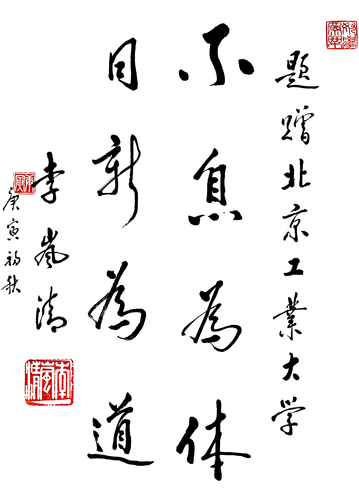 题赠北京工业大学
不息為体
日新為道
李岚清
庚寅初秋